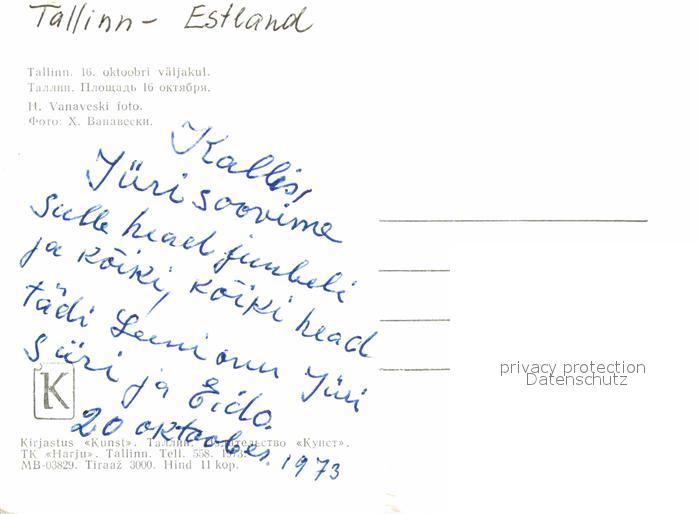 Tallinn - Estland
Tallinn. 16. oktoobri väljakul.
Таллин. Площадь 16 октября.
H. Vanaveski foto.
Фото: Х. Ванавески.
Kallis!
Jüri soovime
Sulle head juubeli
ja kõiki, kõiki head
tädi Leeni onu Jüri
Siiri ja Eido.
20 oktoober. 1973
K
privacy protection
Datenschutz
Kirjastus «Kunst». Таллин. Издательство «Кунст».
TK «Harju». Tallinn. Tell. 558. 1973.
MB-03829. Tiraaž 3000. Hind 11 kop.